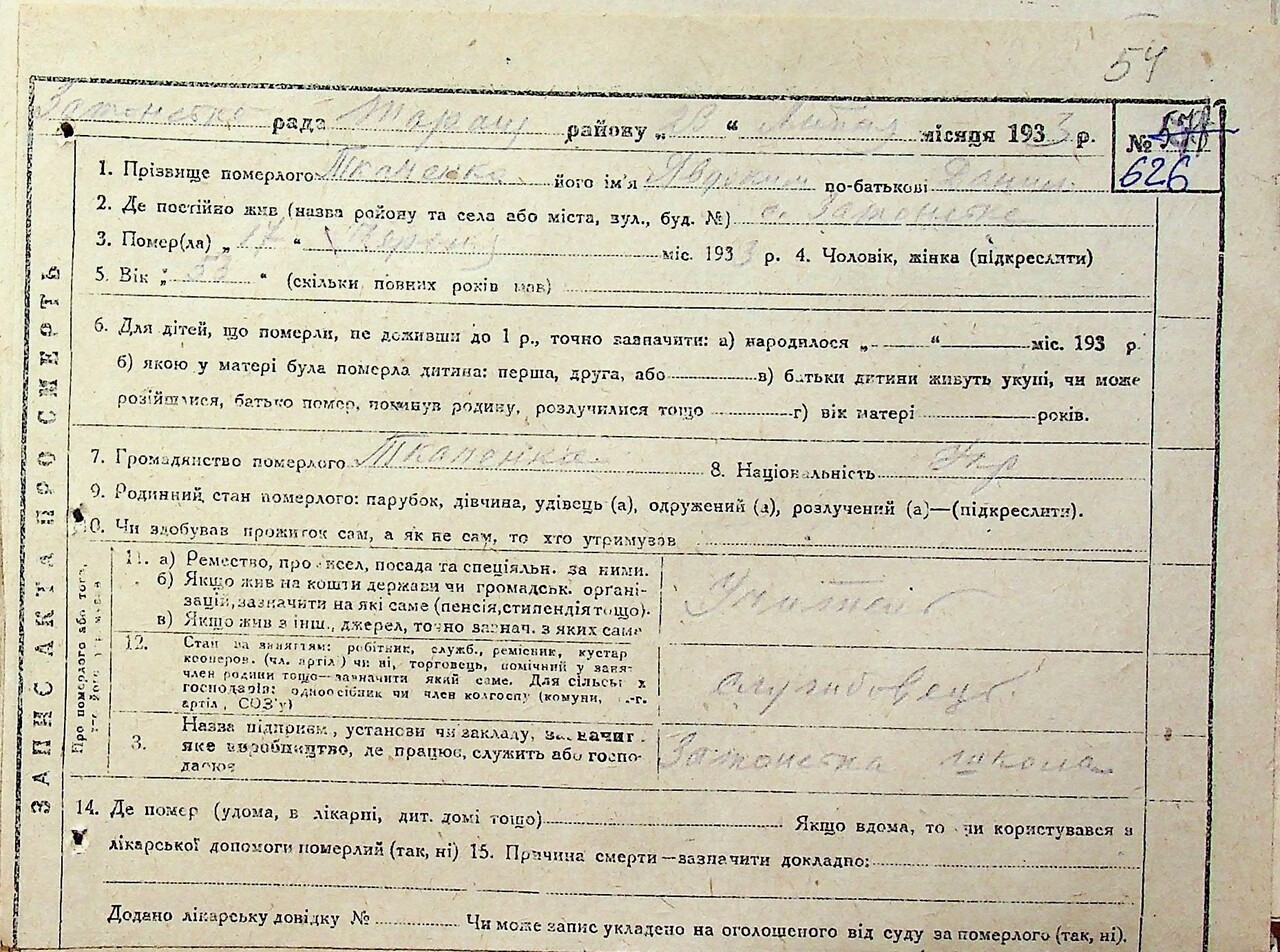 54
рада району „ 23 “ місяця 1933 р.
№ 626
1. Прізвище померлого Ткаченко його ім'я по-батькові Данил.
2. Де постійно жив (назва району та села або міста, зул., буд. №) с. Затонське
3. Помер(ла) „ 17 “ Червня міс. 1933 р. 4. Чоловік, жінка (підкреслити)
5. Вік „ 53 “ (скільки повних років мав)
6. Для дітей, що померли, не доживши до 1 р., точно зазначити: а) народилося „ “ міс. 193 р
б) якою у матері була померла дитина: перша, друга, або в) батьки дитини живуть укупі, чи може
розійшлися, батько помер, покинув родину, розлучилися тощо г) вік матері років.
7. Громадянство померлого 8. Національність Укр
9. Родинний стан померлого: парубок, дівчина, удівець (а), одружений (а), розлучений (а)—(підкреслити).
10. Чи здобував прожиток сам, а як не сам, то хто утримував
11. а) Ремество, про сел, посада та спеціяльн. за ними.
б) Якщо жив на кошти держави чи громадськ. органі-
зацій, зазначити на які саме (пенсія, стипендія тощо).
в) Якщо жив з інш., джерел, точно зазнач. з яких саме
Учитель
12. Стан за заняттям: робітник, служб., ремісник, кустар
кооперов. (чл. артіл.) чи ні, торговець, помічний у заня-
член родини тощо—зазначити який саме. Для сільськ х
господарів: одноосібник чи член колгоспу (комуни, -г.
артіл, СОЗ'у)
службовець.
3. Назва підприєм, установи чи закладу, зазначит
яке виробництво, де працює, служить або госпо-
дарює
Затонська школа
14. Де помер (удома, в лікарні, дит. домі тощо) Якщо вдома, то чи користувався з
лікарської допомоги померлий (так, ні) 15. Причина смерти—зазначити докладно:
Додано лікарську довідку № Чи може запис укладено на оголошеного від суду за померлого (так, ні).
ЗАПИС АКТА ПРО СМЕРТЬ
Про померлого або того,